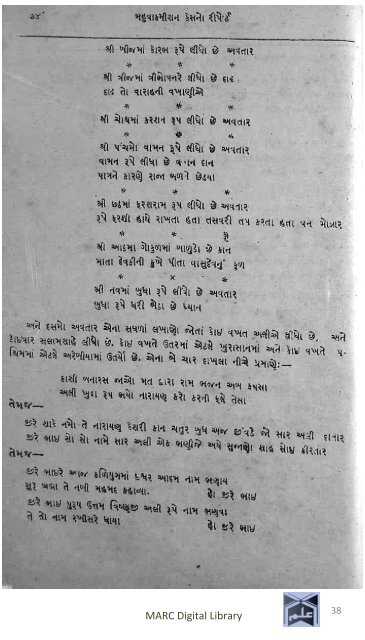 ૩૪ મહુવાકમીશન કેસનો રીપોર્ટ
શ્રી બીજમાં કોરભ રૂપે લીધો છે અવતાર
* * *
શ્રી ત્રીજમાં ત્રીભોવનરે લીધો છે દાઢ
દાઢ તો વારાહની વખાણીએ
* * *
શ્રી ચોથમાં કરશન રૂપ લીધો છે અવતાર
* * *
શ્રી પંચમો વામન રૂપે લીધો છે અવતાર
વામન રૂપે લીધા છે દાન
પાત્રને કારણે રાજા બળને છેડયા
* * *
શ્રી છઠમાં ફરશરામ રૂપ લીધો છે અવતાર
રૂપે ફરશી હાથે રાખતા હતા તસવરી તપ કરતા હતા વન મોઝાર
* * *
શ્રી આઠમા ગોકુળમાં બાળુડો છે કાન
માતા દેવકીની કુખે પીતા વાસુદેવનું કુળ
* * *
શ્રી નવમાં બુધા રૂપે લીધો છે અવતાર
બુધા રૂપે ધરી બેઠા છે ધ્યાન
અને દસમો અવતાર એના સઘળાં લખાણો જોતાં કોઇ વખત અલીએ લીધો છે, અને
કોઇવાર સલામશાહે લીધો છે. કોઇ વખતે ઉતરમાં એટલે ખુરાસાનમાં અને કોઇ વખતે પ-
શ્ચિમમાં એટલે અરેબીયામાં ઉતર્યો છે. એના બે ચાર દાખલા નીચે પ્રમાણે:—
કાશી બનારસ જાઓ મત દ્વારા રામ ભજન અળ કયસા
અલી ખુદા રૂપ ભયો નારાયણ કરો કરની પુછે તેસા
તેમજ—
જીરે શાકે નમો તે નારાયણ કેશરી કાન ચતુર બુધ અજ જીવડે જો સાર અત્રી દાતાર
જીરે ભાઇ સો સો નામે સાર અલી એક ભણીજે અયે સુન્નણા સાહ સોઇ કીરતાર
તેમજ—
જીરે ભાઇરે આજ કળિયુગમાં ઇશ્વર આદમ નામ ભણાય
ગુર બ્રહ્મા તે નબી મહમદ કહાવ્યા. હો જીરે ભાઇ
જીરે ભાઇ પુરૂષ ઉત્તમ વિષ્ણુજી અલી રૂપે નામ ભણવા
તે સો નામ રખીસરે ધાયા હો જીરે ભાઇ
MARC Digital Library 38